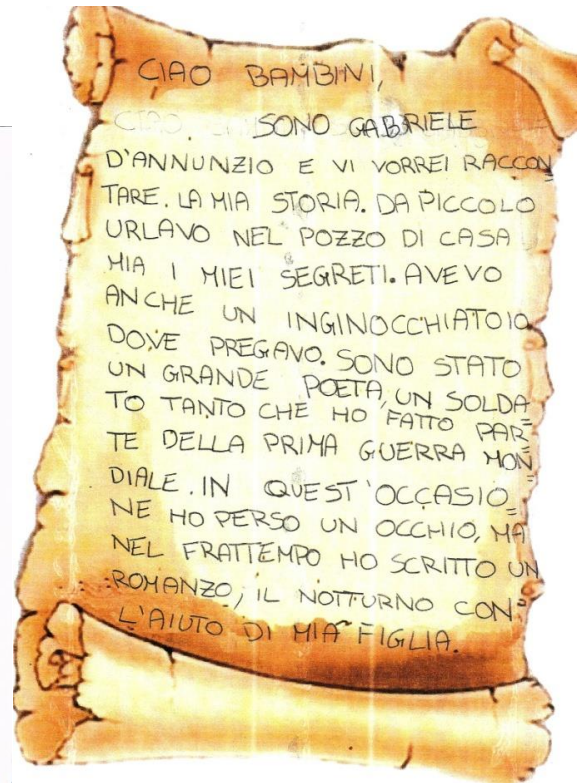 CIAO BAMBINI,
CIAO SONO GABRIELE
D'ANNUNZIO E VI VORREI RACCON=
TARE. LA MIA STORIA. DA PICCOLO
URLAVO NEL POZZO DI CASA
MIA I MIEI SEGRETI. AVEVO
ANCHE UN INGINOCCHIATOIO
DOVE PREGAVO. SONO STATO
UN GRANDE POETA, UN SOLDA
TO TANTO CHE HO FATTO PAR=
TE DELLA PRIMA GUERRA MON
DIALE. IN QUEST'OCCASIO=
NE HO PERSO UN OCCHIO, MA
NEL FRATTEMPO HO SCRITTO UN
ROMANZO, IL NOTTURNO CON=
L'AIUTO DI MIA FIGLIA.